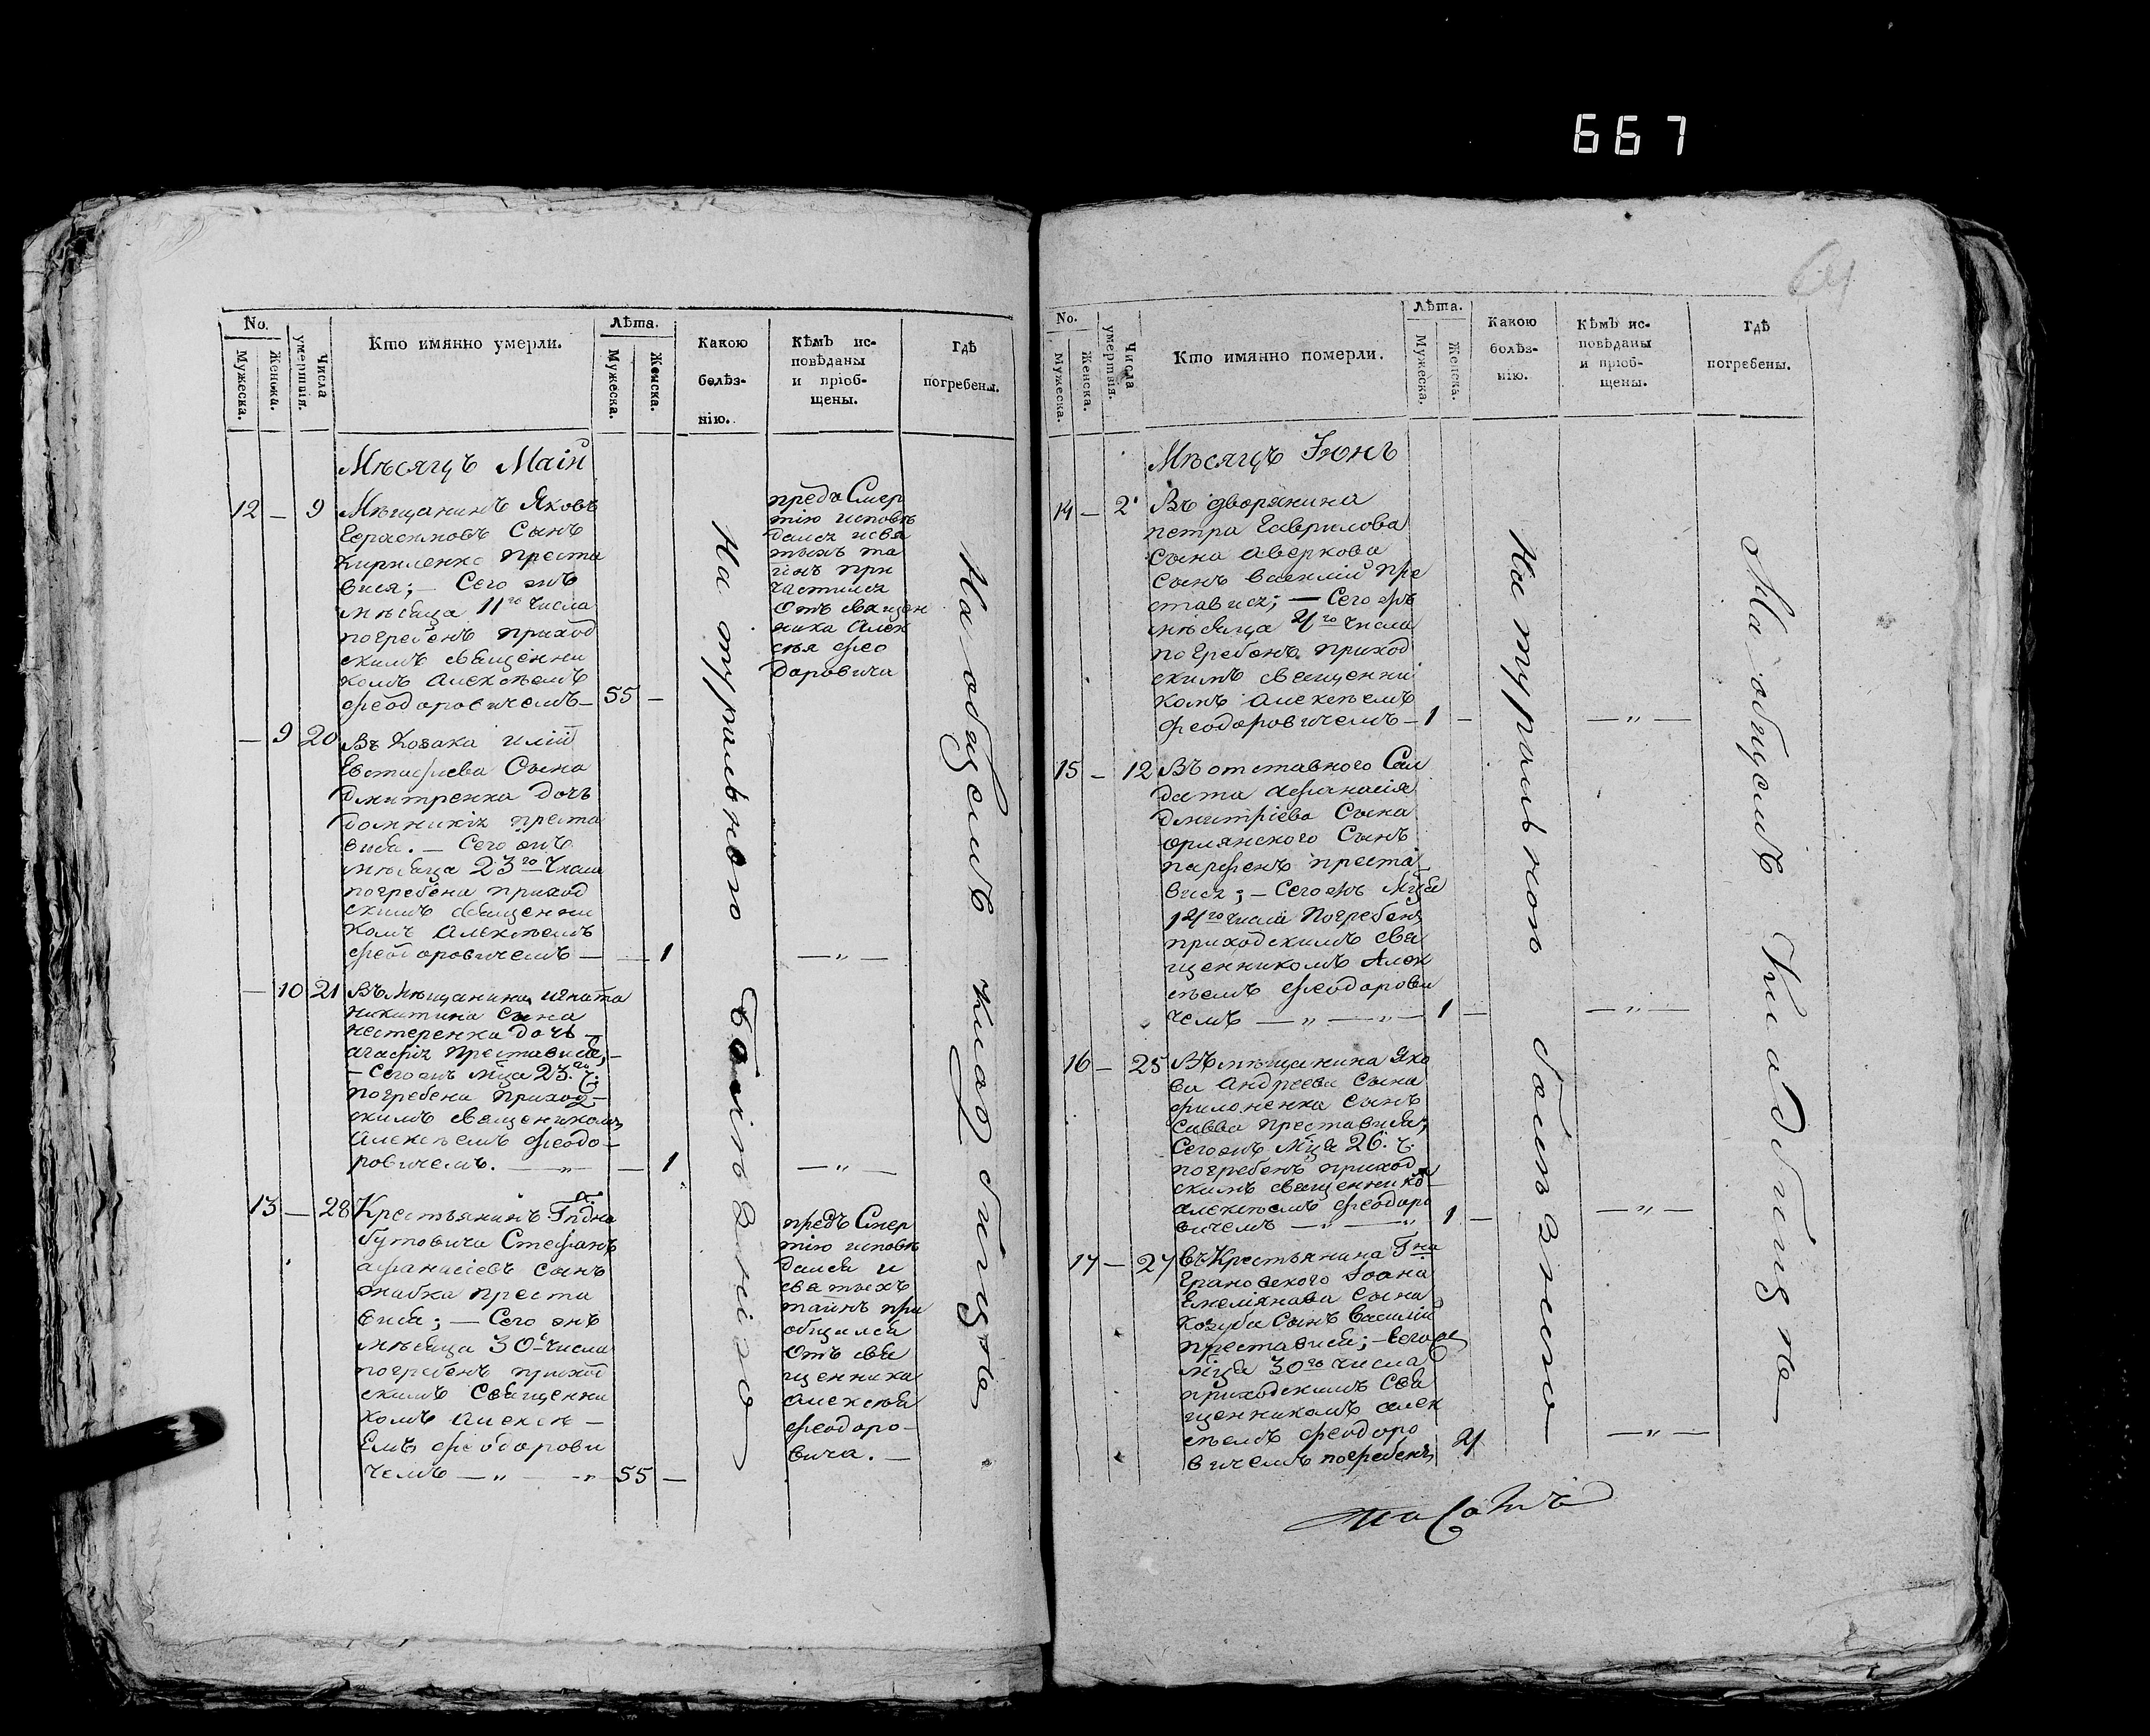 667
No.
Мужеска.
Женска.
Числа умертвія.
Кто имянно умерли.
Лѣта.
Мужеска.
Женска.
Какою болѣз-
нію.
Кѣмъ ис-
повѣданы
и пріоб-
щены.
Гдѣ
погребены.
Мѣсяцъ Маій
12 — 9 Мѣщанинъ Яковъ
Герасимовъ Сынъ
Кириленко преста
вися; — Сего жъ
мѣсяца 11го числа
погребенъ приход
скимъ священни
комъ Алексѣемъ
Феодоровичемъ — 55 —
предъ Смер
тію исповѣ
дался и свя
тыхъ та
инъ при
частился
отъ священ
ника Алек
сѣя Фео
доровича
— 9 20 Въ Козака Иліи
Евстафиева Сына
Дмитренка дочь
Домникія преста
вися. — Сего жъ
мѣсяца 23го числа
погребена приход
скимъ священни
комъ Алексѣемъ
Феодоровичемъ — — 1 — „ —
— 10 21 Въ Мѣщанина Игната
Никитина Сына
Нестеренка дочь —
Агафія преставися; —
— Сего жъ мца 23.го ч.
погребена приход —
скимъ священикомъ
Алексѣемъ Феодо —
ровичемъ. — „ — — 1 — „ —
13 — 28 Крестьянинъ Гпдна
Бутовича Стефанъ
Афанасіевъ сынъ
Жабка преста
вися; — Сего жъ
мѣсяца 30го числа
погребенъ приход
скимъ Священни
комъ Алексѣ —
емъ Феодорови
чемъ — „ — „ — 55 —
предъ Смер
тію исповѣ
дался и
святыхъ
таинъ при
общился
отъ свя
щенника
Алексѣя
Феодоро —
вича. —
На туральною болѣзнію
На общемъ кладбищѣ
No.
Мужеска.
Женска.
Числа умертвія.
Кто имянно померли.
Лѣта.
Мужеска.
Женска.
Какою
болѣз-
нію.
Кѣмъ ис-
повѣданы
и пріоб-
щены.
Гдѣ
погребены.
Мѣсяцъ Іюнь
14 — 2 Въ дворянина
Петра Гаврилова
Сына Аверкова
Сынъ Василій пре
ставися; — Сего жъ
мѣсяца 4го числа
погребенъ приход
скимъ священни
комъ Алексѣемъ
Феодоровичемъ — 1 — — „ —
15 — 12 Въ отставного Сал
дата Афанасія
Дмитріева Сына
Орлянского Сынъ
Парфенъ преста
вися; — Сего жъ мця
14го числа погребенъ
приходскимъ свя
щенникомъ Алек
сѣемъ Феодорови
чемъ — „ — „ — 1 — — „ —
16 — 25 Въ мѣщанина Яко
ва Андреева Сына
Филоненка Сынъ
Савва преставися;
Сего жъ мця 26. ч.
погребенъ приход
скимъ священнико
Алексѣемъ Феодоро
вичемъ — „ — „ 1 — — „ —
17 — 27 Въ Крестьянина Гна
Грановского Іоана
Емеліянова Сына
Козуба Сынъ Василій
преставися; — Сего ж
мця 30го числа
приходскимъ Свя
щенникомъ Алек
сѣемъ Феодоро
вичемъ погребенъ 4 — „ —
На туральною болѣзнію
На общемъ Кладбищѣ